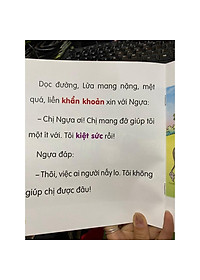 Dọc đường, Lừa mang nặng, mệt
quá, liền khẩn khoản xin với Ngựa:
– Chị Ngựa ơi! Chị mang đỡ giúp tôi
một ít với. Tôi kiệt sức rồi!
Ngựa đáp:
– Thôi, việc ai người nấy lo. Tôi không
giúp chị được đâu!